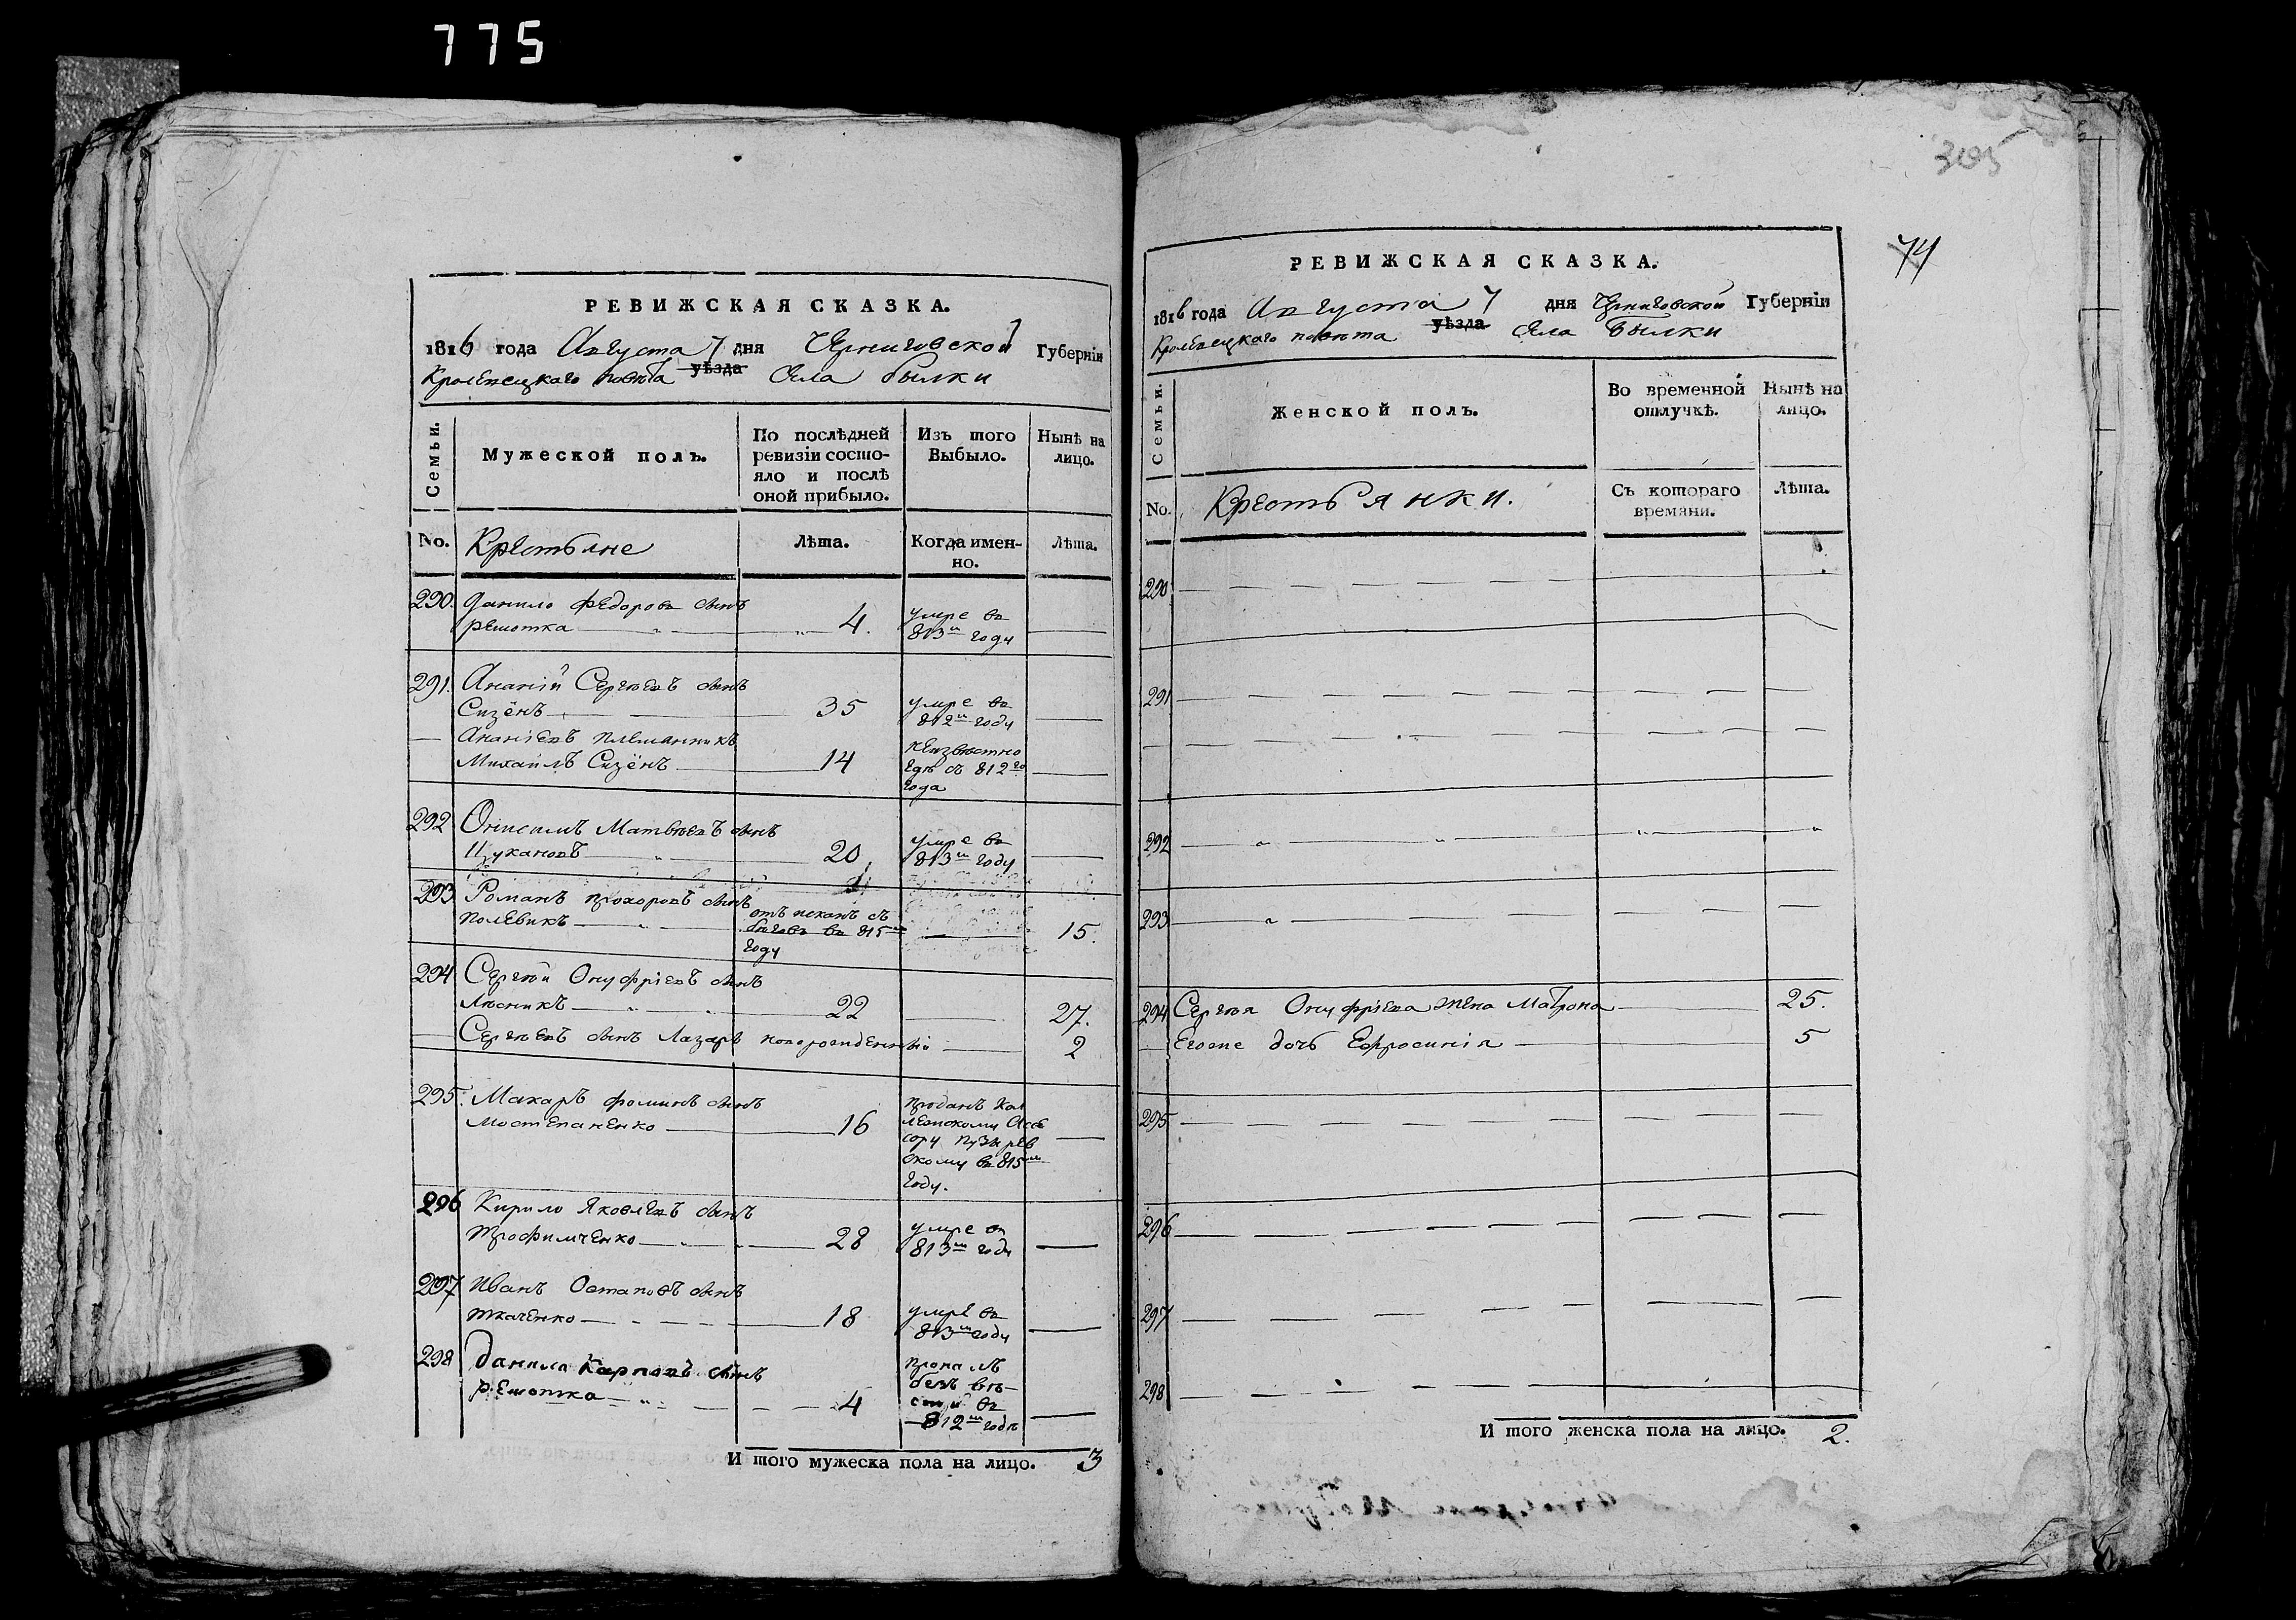 775
РЕВИЖСКАЯ СКАЗКА.
1816 года Августа 7 дня Черниговской Губерніи
Кролевецкаго повѣта уѣзда Села Былки
Семьи.
Мужеской полъ.
По послѣдней
ревизіи состо-
яло и послѣ
оной прибыло.
Изъ того
Выбыло.
Нынѣ на
лицо.
No. Крестьяне
Лѣта.
Когда имен-
но.
Лѣта.
290. Данило Федоровъ сынъ
Решотка 4. умре въ
813м году
291. Ананій Сергѣевъ сынъ
Сизёнъ 35 умре въ
812м году
Ананіевъ племянникъ
Михаилъ Сизёнъ 14 неизвѣстно
гдѣ съ 812го
года
292. Онисимъ Матвѣевъ сынъ
Цукановъ 20 умре въ
813м году
293 Романъ Прохоровъ сынъ
Полевикъ отъисканъ съ
бѣговъ въ 815м
году 15.
294 Сергѣй Онуфріевъ сынъ
Лѣсникъ 22 27.
Сергѣевъ сынъ Лазарь новорожденный 2
295. Макаръ Фоминъ сынъ
Мостепаненко 16 проданъ Кол
лежскому Ассе
сору Пузырев
скому въ 815м
году.
296 Кирило Яковлевъ сынъ
Трофимченко 28 умре въ
813м году
297 Иванъ Остаповъ сынъ
Ткаченко 18 умре въ
813м году
298 Данила Карповъ сынъ
Решотка 4 пропалъ
безъ вѣ-
сти въ
812м годѣ
И того мужеска пола на лицо. 3
305
74
РЕВИЖСКАЯ СКАЗКА.
1816 года Августа 7 дня Черниговской Губерніи
Кролевецкаго повѣта уѣзда Села Былки
Семьи.
Женской полъ.
Во временной
отлучкѣ.
Нынѣ на
лицо.
No. Крестьянки.
Съ котораго
времяни.
Лѣта.
290
291
292
293
294 Сергѣя Онуфріева жена Матрона 25.
Егоже дочь Ефросинія 5
295
296
297
298
И того женска пола на лицо. 2.